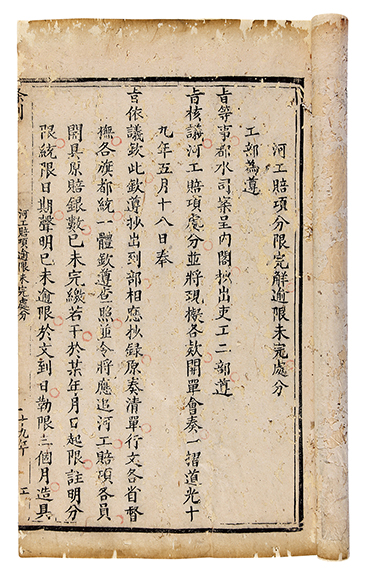 河工賠項分限完解逾限未完處分
工部為遵
旨等事都水司案呈內閣抄出吏工二部遵
旨核議河工賠項處分並將現擬各欵開單會奏一摺道光十
九年五月十八日奉
旨依議欽此欽遵抄出到部相應抄錄原奏清單行文各省督
撫各旗都統一體欽遵查照並令將應追河工賠項各員
開具原賠銀數已未完繳若干於某年月日起限註明分
限統限日期聲明已未逾限於文到日勒限三個月造具
河工賠項逾限未完處分
十九年
工